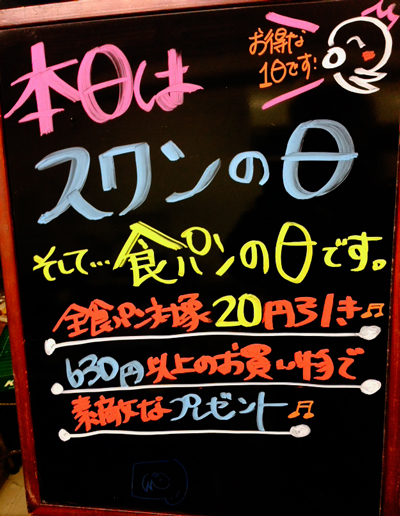 お得な
1日です!
本日は
スワンの日
そして…食パンの日です。
全食パン対象20円引き♫
630円以上のお買い物で
素敵なプレゼント♫